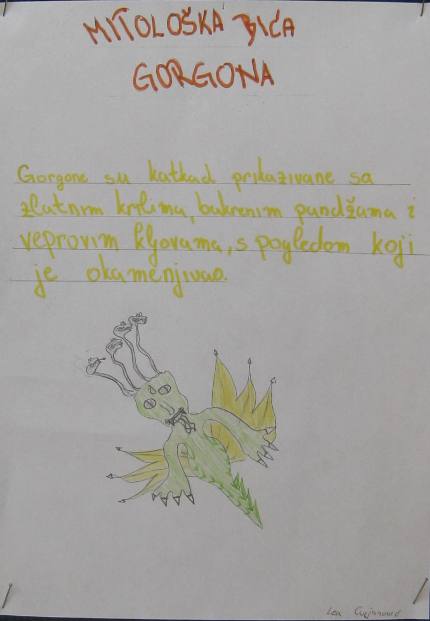 MITOLOŠKA BIĆA
GORGONA
Gorgone su katkad prikazivane sa
zlatnim krilima, bakrenim pandžama i
veprovim kljovama, s pogledom koji
je okamenjivao.
Lea